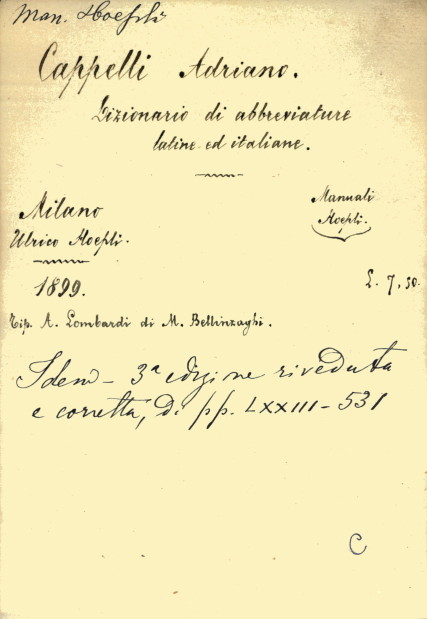 Man. Hoepli
Cappelli Adriano.
Dizionario di abbreviature
latine ed italiane.
Manuali
Hoepli.
Milano
Ulrico Hoepli.
1899.
L. 7,50.
Tip. A. Lombardi di M. Bellinzaghi.
Idem - 3ª edizione riveduta
e corretta, di pp. LXXIII - 531
C